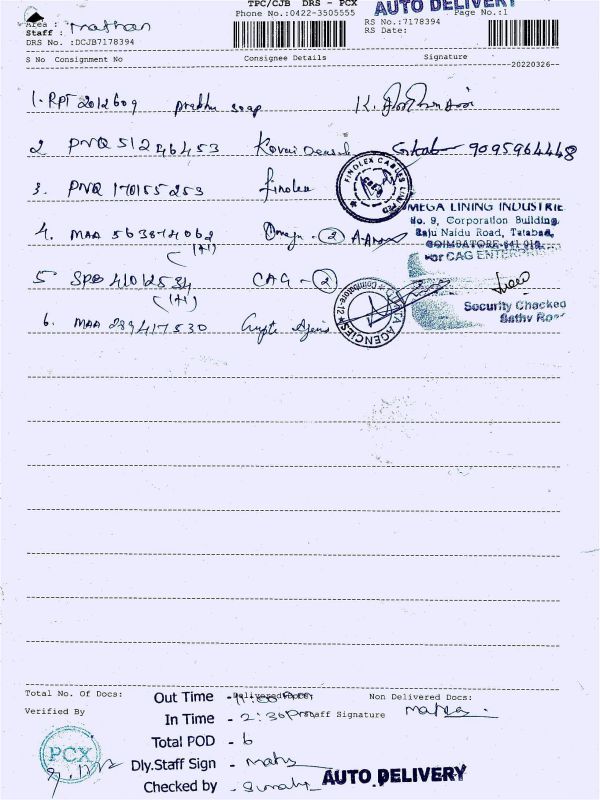 TPC/CJB DRS - PCX
AUTO DELIVERY
Area :
Phone No.:0422-3505555
Page No.:1
Staff : Mathan
RS No.:7178394
DRS No. :DCJB7178394
RS Date:
S No Consignment No Consignee Details Signature
20220326
1. RPT 2012609 Prabhu Soap
2 PNQ 512464453 Kovai 9095964448
3. PNQ 170155253 Finolex
FINOLEX CABLES LIMITED
4. MAA 563874062 Omega - 2
(+1)
OMEGA LINING INDUSTRIE
No. 9, Corporation Building,
Raju Naidu Road, Tatabad,
COIMBATORE-641 012.
For CAG ENTERPRISES
5 41012534 CAG - 2
(+1)
Security Checked
Sathy Road
6. MAA 289417530
AGENCIES Coimbatore-12
Total No. Of Docs:
Delivered Docs:
Non Delivered Docs:
Out Time - 11:00
Verified By
In Time - 2:30 Pm
Staff Signature
Total POD - 6
PCX
Dly.Staff Sign -
Checked by -
AUTO DELIVERY